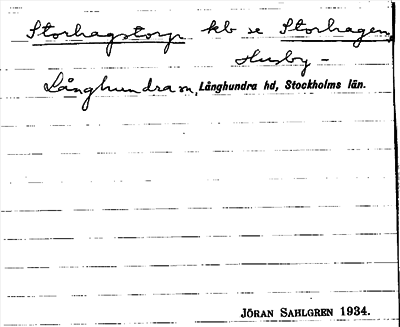 Storhagstorp kb se Storhagen,
Husby-
Långhundra sn, Långhundra hd, Stockholms län.
JÖRAN SAHLGREN 1934.